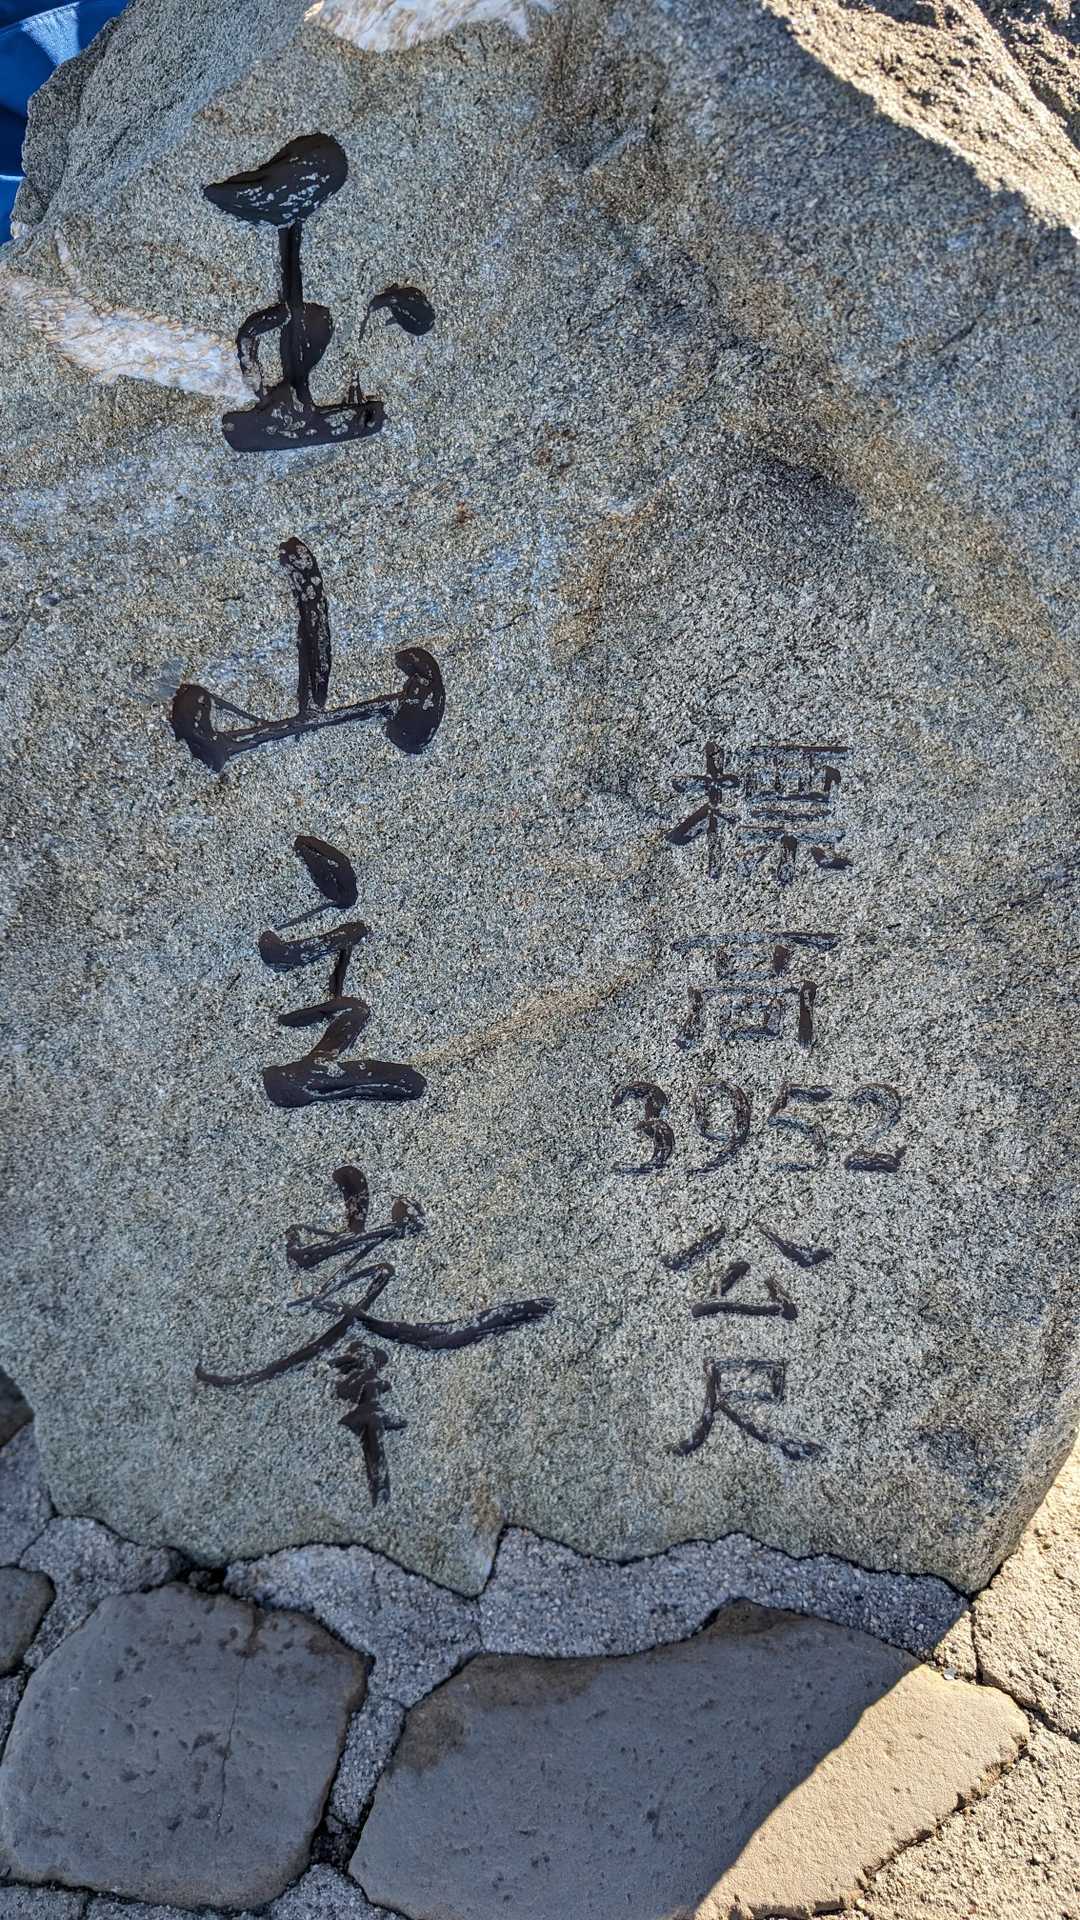 玉山主峯
標高3952公尺